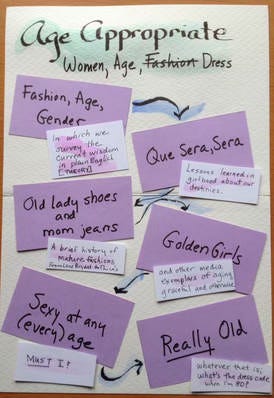 Age Appropriate
Women, Age, Fashion Dress
Fashion, Age,
Gender
In which we
survey the
current wisdom
in plain English
[THEORY]
Que Sera, Sera
Lessons learned in
girlhood about our
destinies.
Old lady shoes
and
mom jeans
A brief history of
mature fashions
from Lane Bryant to Chico's
Golden Girls
and other media
exemplars of aging
graceful and otherwise
Sexy at any
(every) age
MUST I?
Really Old
whatever that is;
what's the dress code
when I'm 80?